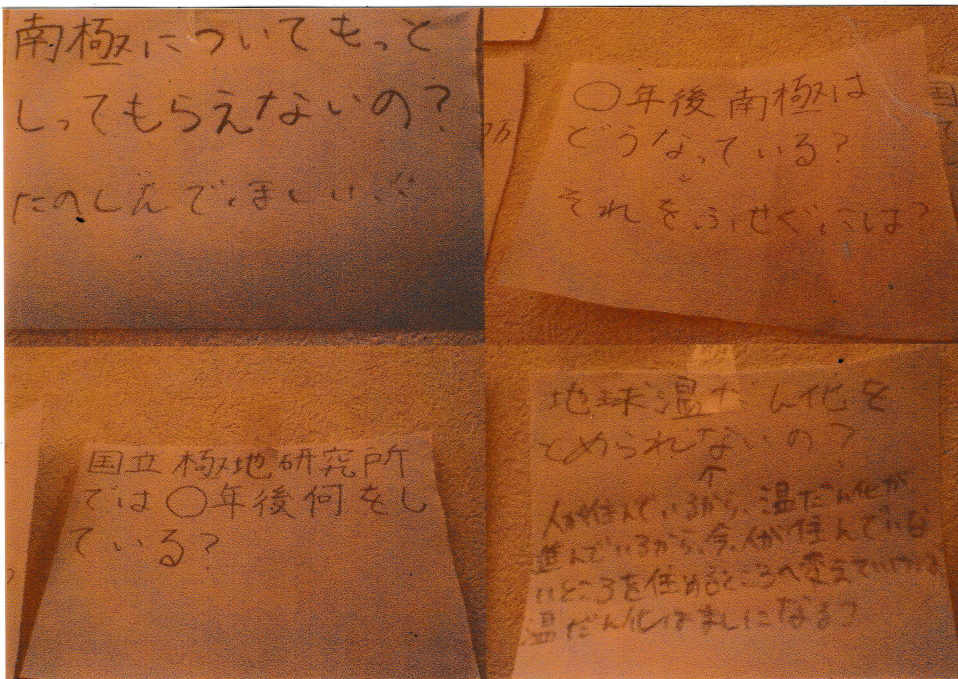 南極についてもっと
しってもらえないの？
たのしんでほしい
〇年後南極は
どうなっている？
↓
それをふせぐには？
国
国立極地研究所
では〇年後何をし
ている？
？
地球温だん化を
とめられないの？
↑
人が住んでいるから、温だん化が
進んでいるから、今、人が住んでいな
いところを住めるところへ変えていけば
温だん化はましになる？